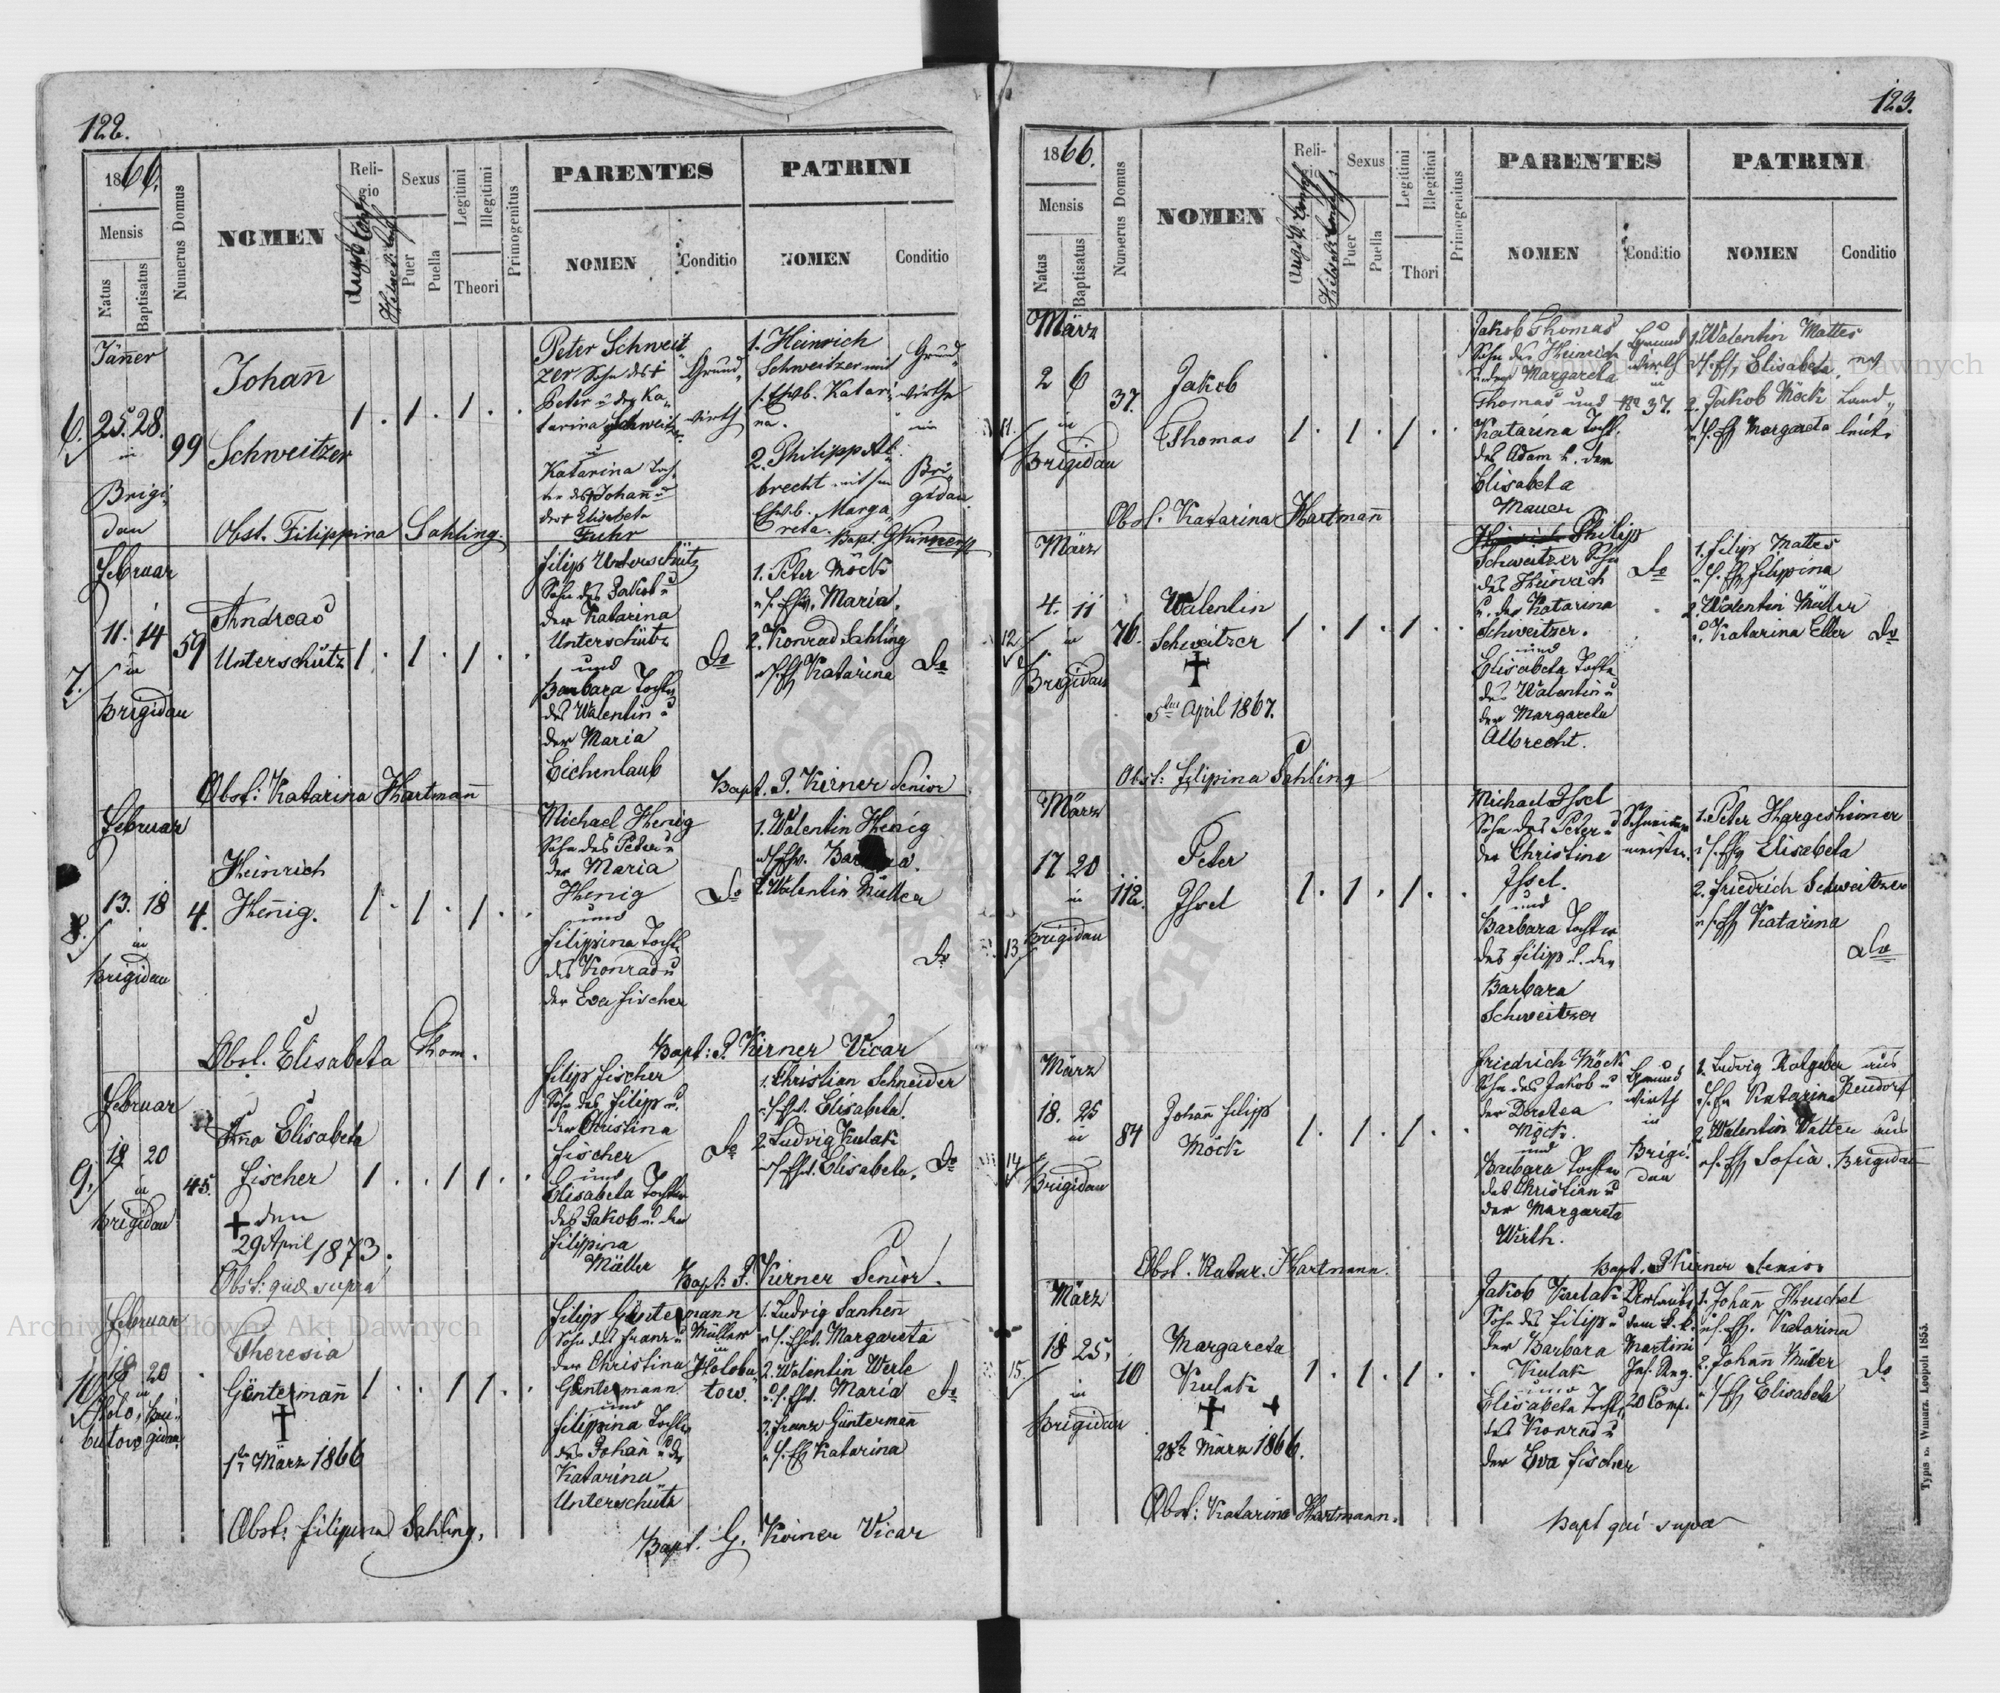 122.
1866.
Mensis
Natus
Baptisatus
Numerus Domus
NOMEN
Religio
Sexus
Puer
Puella
Legitimi
Illegitimi
Theori
Primogenitus
PARENTES
NOMEN
Conditio
PATRINI
NOMEN
Conditio
Jäner
6.
25. 28.
in
Brigi
dau
99
Johañ
Schweitzer
1 . 1 . 1 . .
Peter Schweit
zer Sohn des †
Peter u der Ka
tarina Schweitzer
u
Katarina Toch
ter des † Johañ u
der † Elisabeta
Fuhr
Grund
wirth
1. Heinrich
Schweitzer mit
s. Ehwb. Katari
na.
2. Philipp Al
brecht mit sn
Ehwb. Marga
reta.
Grund
wirthe
in
Bri
gidau
Obst. Filippina Sahling.
Februar
7.
11. 14
in
Brigidau
59
Andreas
Unterschütz
1 . 1 . 1 . .
Filip Unterschütz
Sohn des Jakob u
der Katarina
Unterschütz
und
Barbara Tochter
des Walentin u
der Maria
Eichenlaub
Do
1. Peter Möck
Maria.
2. Konrad Sahling
Katarina
Do
Obst: Katarina Hartmañ
Bapt. P. Kirner Senior
Februar
8.
13. 18
in
Brigidau
4.
Heinrich
Heñig.
1 . 1 . 1 . .
Michael Henig
Sohn des Peter u
der Maria
Henig
und
Filippina Tochter
des Konrad u
der Eva Fischer
Do
1. Walentin Henig
2. Walentin Müller
Do
Obst. Elisabeta Thom.
Bapt: P. Kirner Vicar
Februar
9.
18 20
in
Brigidau
45.
Ana Elisabeta
Fischer
† den
29 April 1873.
1 . . 1 1 . .
Filip Fischer
Sohn des Filip u.
der Christina
Fischer
und
Elisabeta Tochter
des Jakob u. der
Filippina
Müller
Do
1. Christian Schneider
Elisabeta.
2. Ludvig Kulak
Elisabeta.
Do
Obst: quae supra
Bapt: P. Kirner Senior.
Februar
10.
18 20
in
Theresia
Güntermañ
†
1te März 1866
1 . . 1 1 . .
Filip Güntermann
Sohn des Franz u
der Christina
Güntermann
und
Filippina Tochter
des Johañ u der
Katarina
Unterschütz
Müller
in
Holobu
tow.
1. Ludvig
Margareta
2. Walentin Werle
Maria
3. Franz Güntermañ
Katarina
Do
Obst: Filipina Sahling.
Bapt. G. Kirner Vicar
123.
1866.
Mensis
Natus
Baptisatus
Numerus Domus
NOMEN
Religio
Sexus
Puer
Puella
Legitimi
Illegitimi
Thori
Primogenitus
PARENTES
NOMEN
Conditio
PATRINI
NOMEN
Conditio
März
11.
2 6
in
Brigidau
37.
Jakob
Thomas
1 . 1 . 1 . .
Jakob Thomas
Sohn des Heinrich
und der Margareta
Thomas und
Katarina Tocht.
des Adam u. der
Elisabeta
Mauer
Grund
wirth
in
Nr 37.
1. Walentin Mattes
Elisabeta
2. Jakob Möck
Margareta
Land
leute
Obst. Katarina Hartmañ
März
12.
4. 11
in
Brigidau
76.
Walentin
Schweitzer
†
5ten April 1867.
1 . 1 . 1 . .
Philip
Schweitzer Sohn
des Heinrich
u. der Katarina
Schweitzer.
und
Elisabeta Tochter
des Walentin u
der Margareta
Albrecht.
Do
1. Filip Mattes
Filipina
2. Walentin Müller
Katarina Eller
Do
Obst: Filipina Sahling
März
13.
17 20
in
Brigidau
112.
Peter
Issel
1 . 1 . 1 . .
Michael Issel
Sohn des Peter u
der Christina
Issel.
und
Barbara Tochter
des Filip u. der
Barbara
Schweitzer
Schneider
meister.
1. Peter Hargesheimer
Elisabeta
2. Friedrich Schweitzer
Katarina
Do
März
14
18. 25
in
Brigidau
84
Johañ Filip
Möck
1 . 1 . 1 . .
Friedrich Möck
Sohn des Jakob u
der Dorotea
Möck.
und
Barbara Tochter
des Christian u
der Margareta
Wirth.
Grund
wirth
in
Brigi
dau
1. Ludvig Ratgeber aus
Katarina Neudorf
2. Walentin aus
Sofia. Brigidau
Obst. Katar. Hartmann.
Bapt. P Kirner Senior
März
15.
18 25.
in
Brigidau
10
Margareta
Kulak
† †
28te März 1866.
1 . 1 . 1 . .
Jakob Kulak
Sohn des Filip u
der Barbara
Kulak
und
Elisabeta Tocht.
des Konrad u
der Eva Fischer
Martini
Inf. Reg.
20 Comp.
1. Johañ Huschel
Katarina
2. Johañ Müller
Elisabeta
Do
Obst: Katarina Hartmann.
Bapt qui supra
Typis M. Winiarz. Leopoli 1855.
Archiwum Główne Akt Dawnych